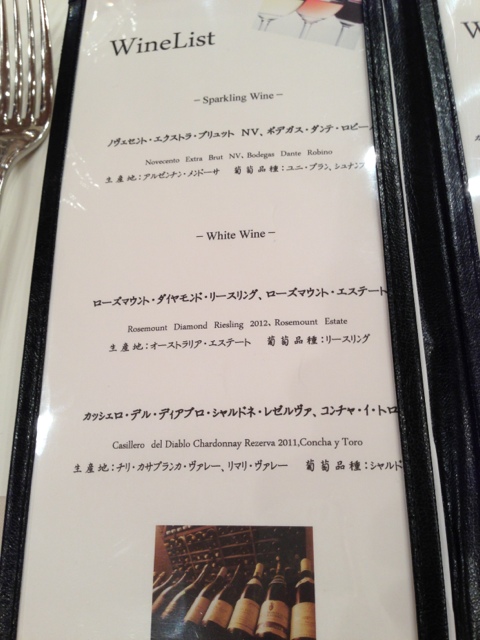 WineList
W
– Sparkling Wine –
ノヴェセント・エクストラ・ブリュット NV、ボデガス・ダンテ・ロビー
Novecento Extra Brut NV、Bodegas Dante Robino
生産地：アルゼンチン・メンドーサ 葡萄品種：ユニ・ブラン、シュナン
– White Wine –
ローズマウント・ダイヤモンド・リースリング、ローズマウント・エステート
Rosemount Diamond Riesling 2012、Rosemount Estate
生産地：オーストラリア・エステート 葡萄品種：リースリング
カッシェロ・デル・ディアブロ・シャルドネ・レゼルヴァ、コンチャ・イ・トロ
Casillero del Diablo Chardonnay Rezerva 2011,Concha y Toro
生産地：チリ・カサブランカ・ヴァレー、リマリ・ヴァレー 葡萄品種：シャルド